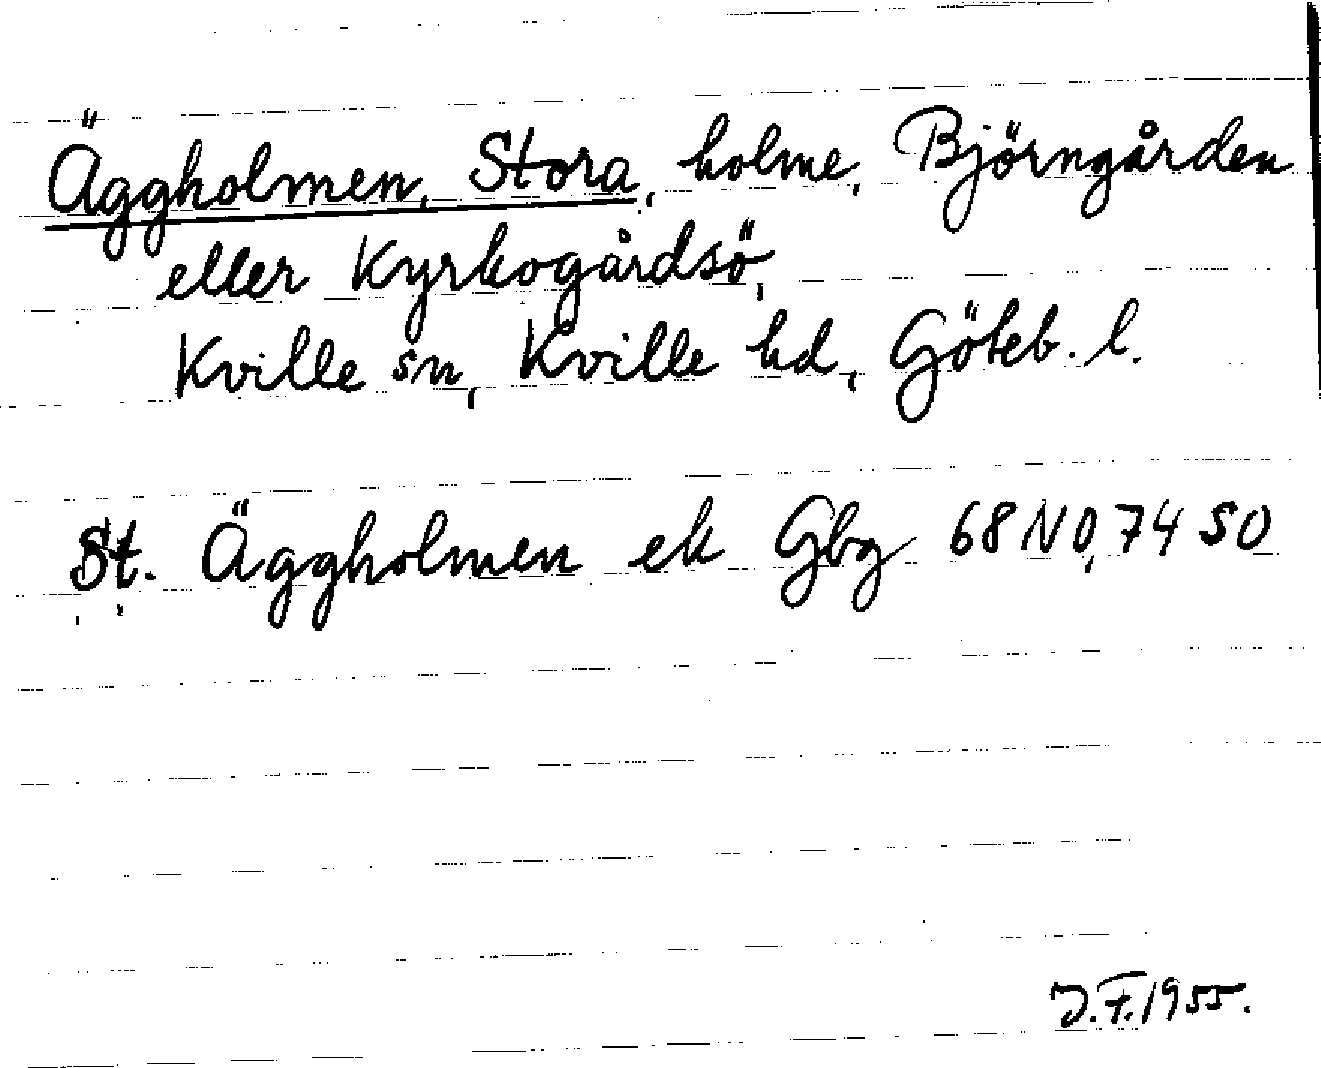 Äggholmen, Stora, holme, Björngården
eller Kyrkogårdsö,
Kville sn, Kville hd, Göteb. l.
St. Äggholmen ek Gbg 68 NO, 74 SO
J.F. 1955.